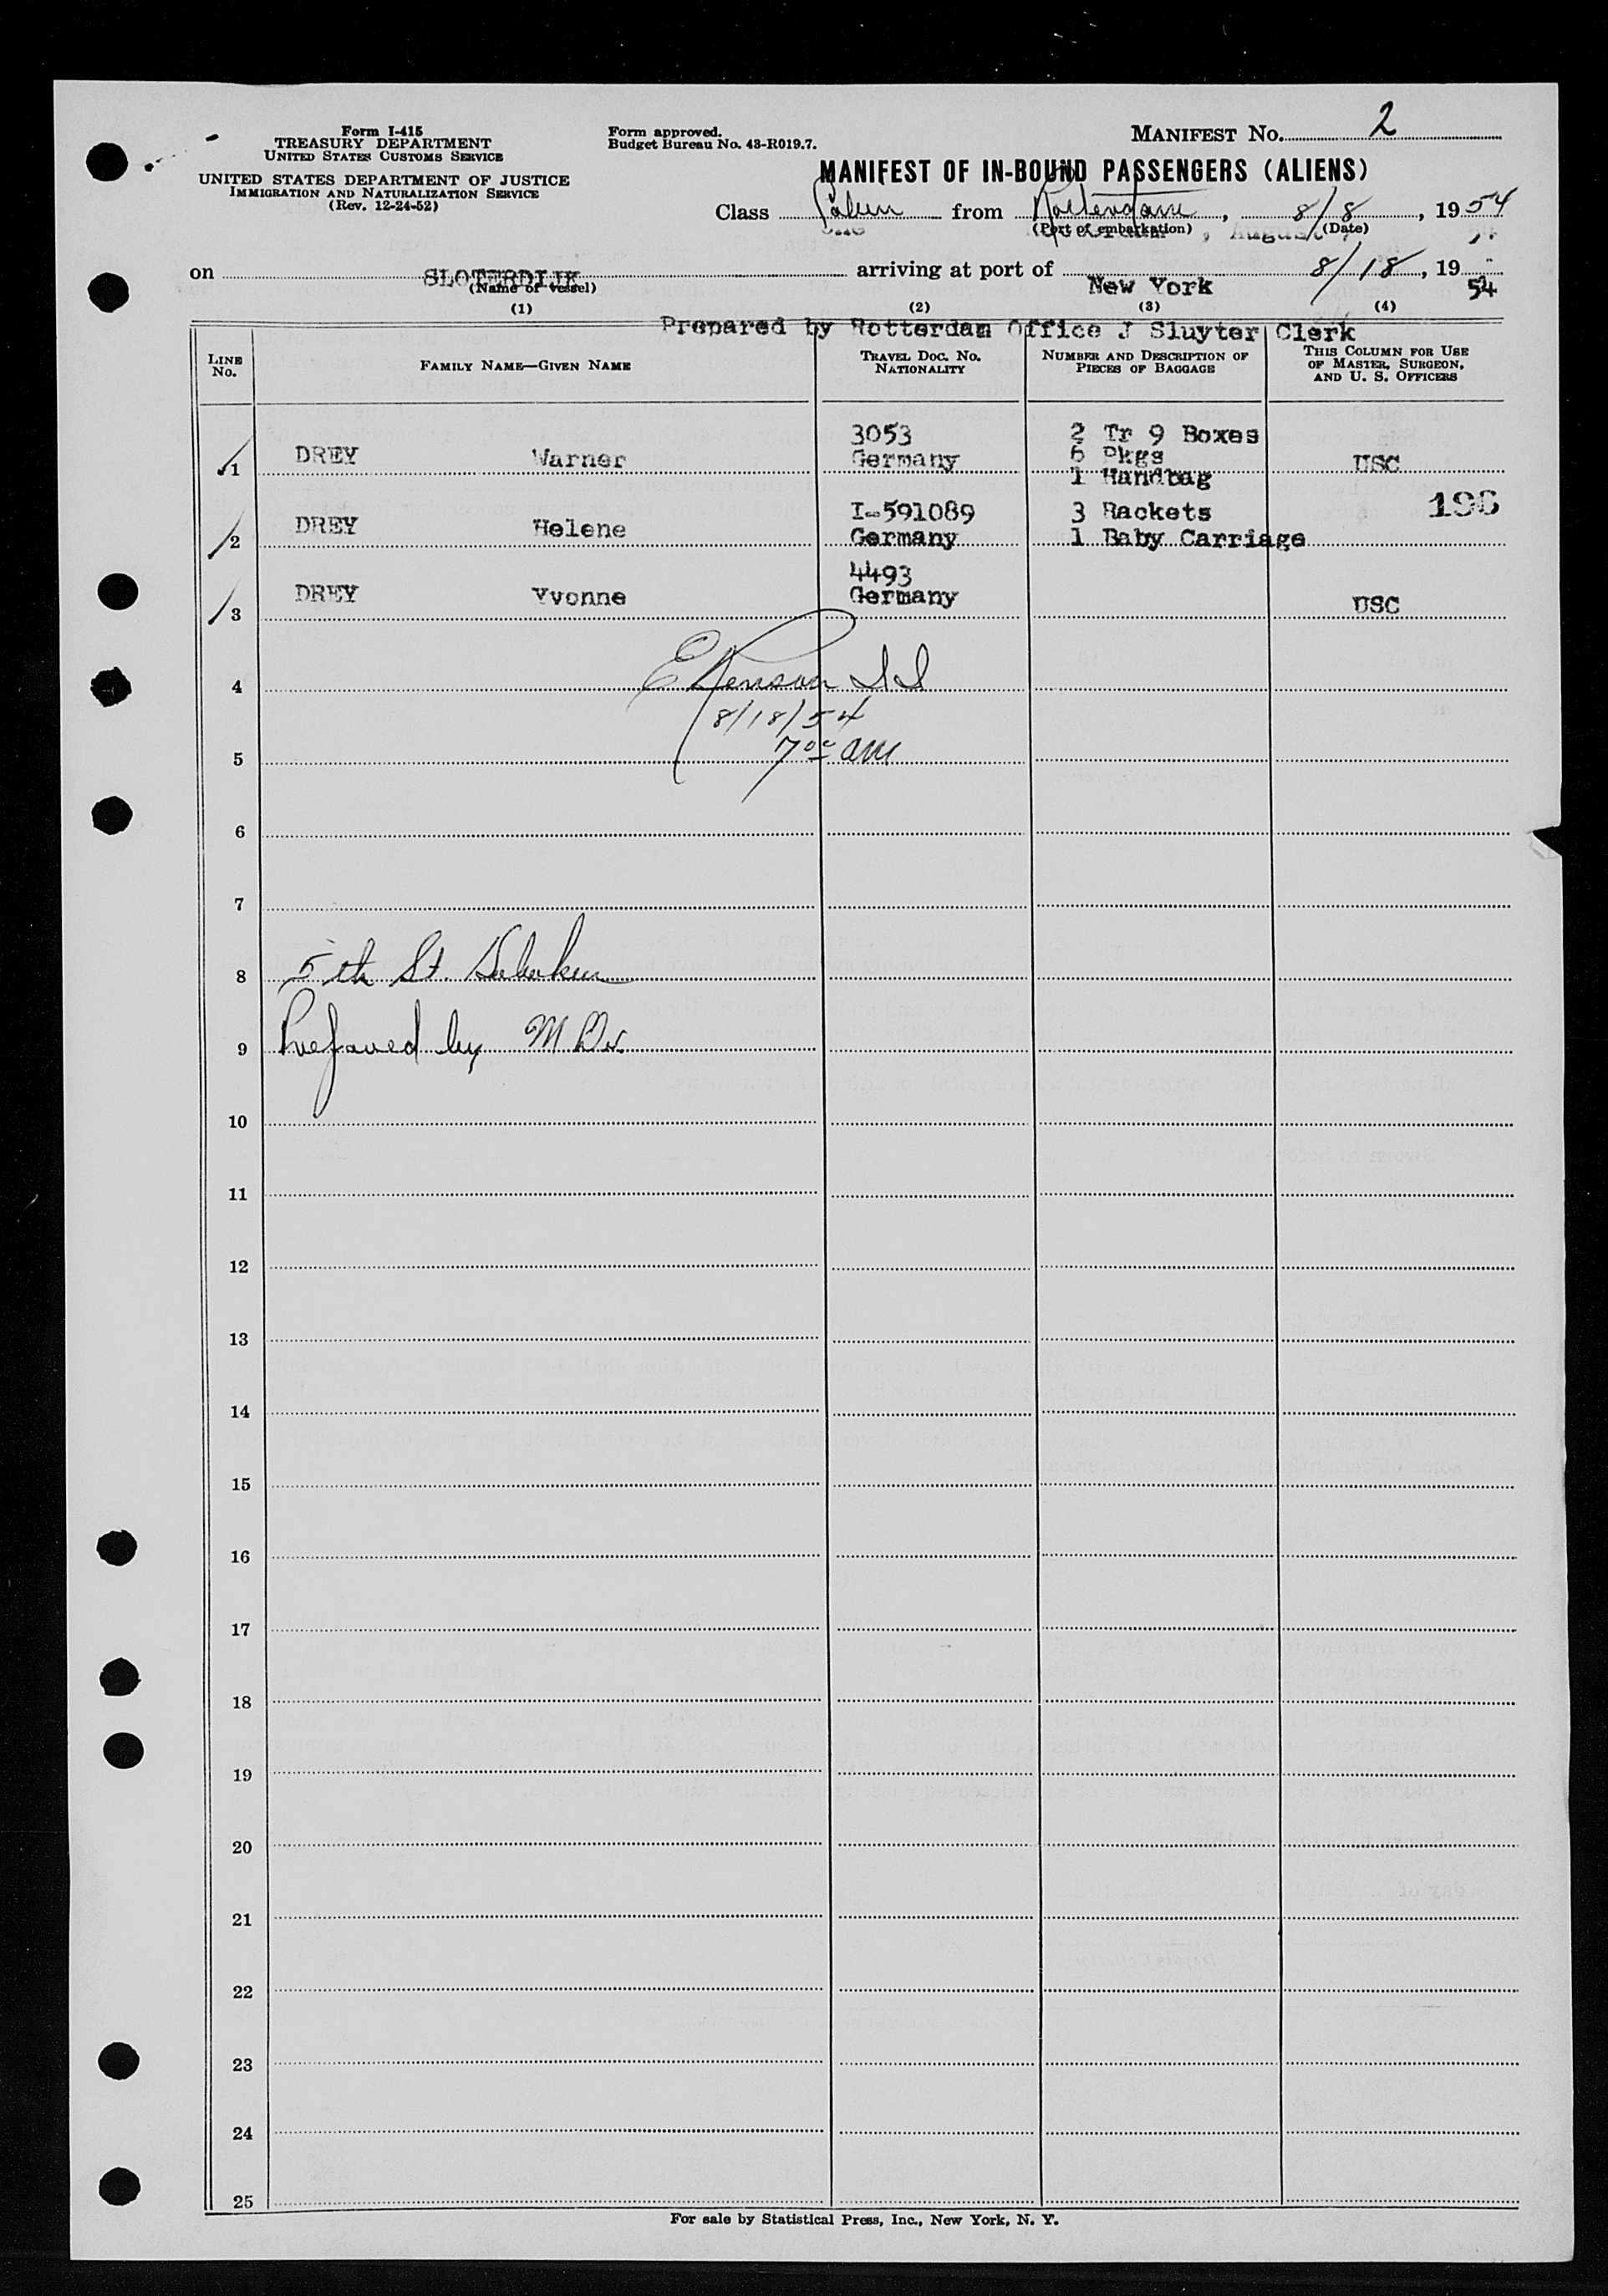 Form I-415
TREASURY DEPARTMENT
UNITED STATES CUSTOMS SERVICE
UNITED STATES DEPARTMENT OF JUSTICE
IMMIGRATION AND NATURALIZATION SERVICE
(Rev. 12-24-52)
Form approved.
Budget Bureau No. 43-R019.7.
MANIFEST NO. 2
MANIFEST OF IN-BOUND PASSENGERS (ALIENS)
Class Cabin from Rotterdam, 8/8, 1954
(Port of embarkation) (Date)
on SLOTERDIJK arriving at port of New York 8/18, 1954
(Name of vessel)
(1) (2) (3) (4)
Prepared by Rotterdam Office J Sluyter Clerk
LINE NO. FAMILY NAME—GIVEN NAME TRAVEL DOC. NO. NATIONALITY NUMBER AND DESCRIPTION OF PIECES OF BAGGAGE THIS COLUMN FOR USE OF MASTER, SURGEON, AND U. S. OFFICERS
3053 2 Tr 9 Boxes
1 DREY Warner Germany 6 Pkgs USC
1 Handbag
I-591089 3 Rackets 196
2 DREY Helene Germany 1 Baby Carriage
4493
3 DREY Yvonne Germany USC
4
8/18/54
5 7 00 am
6
7
8 5th St. Hoboken
9 Prepared by
10
11
12
13
14
15
16
17
18
19
20
21
22
23
24
25
For sale by Statistical Press, Inc., New York, N. Y.